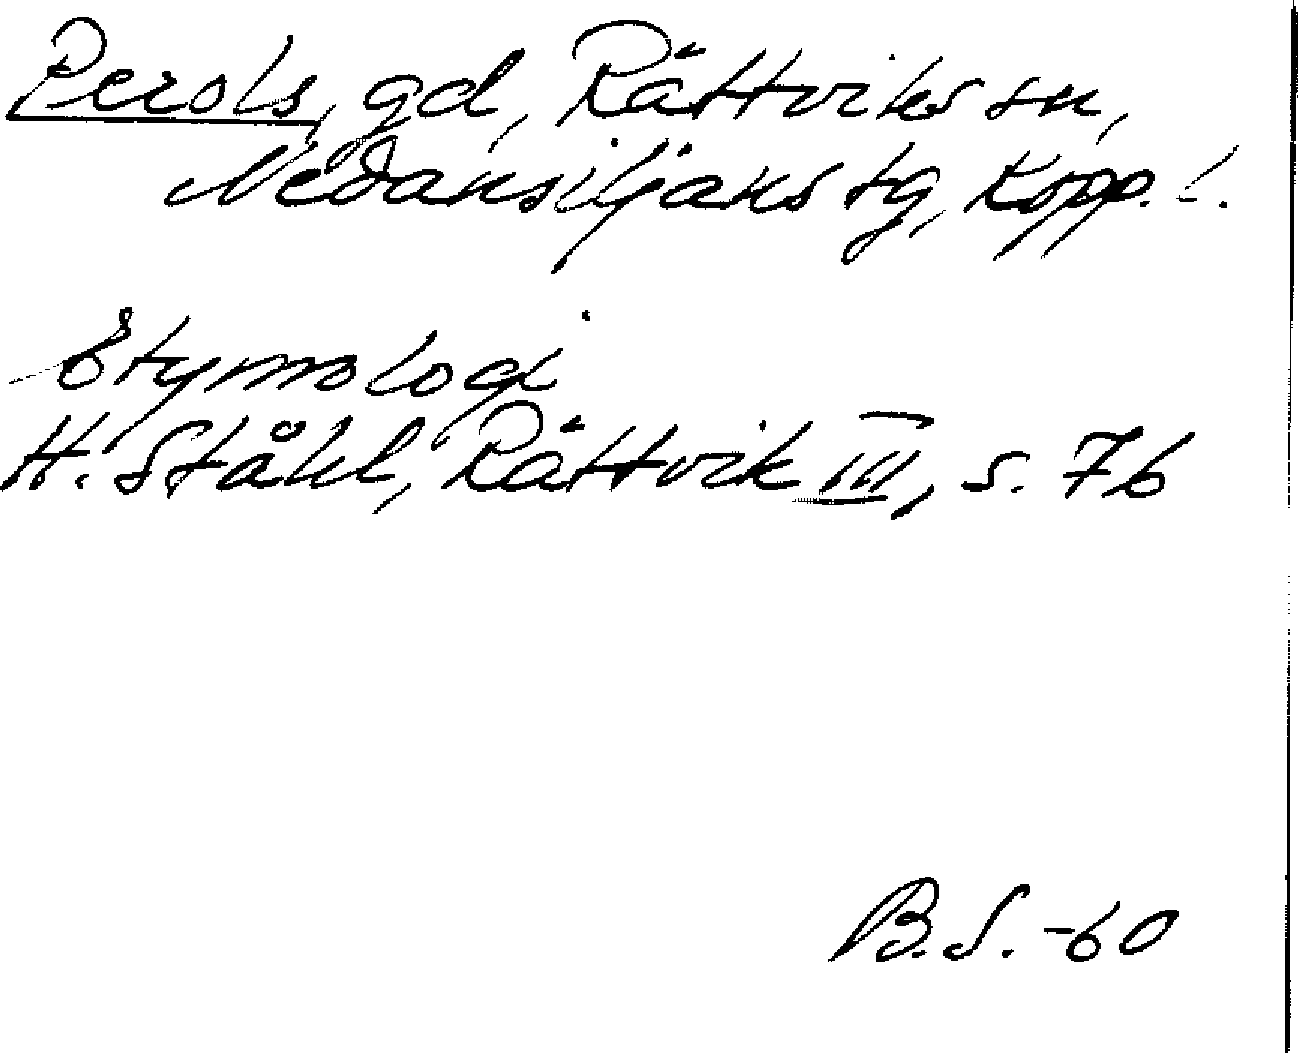 Perols, gd, Rättviks sn,
Nedansiljans tg, Kopp. l.
Etymologi
H. Ståhl, Rättvik III, s. 76
B.S. -60